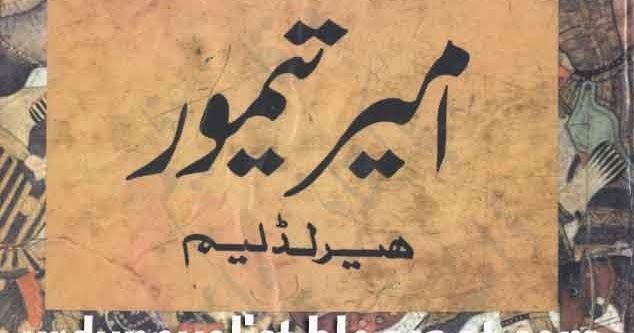 امیر تیمور
ھیرلڈلیم